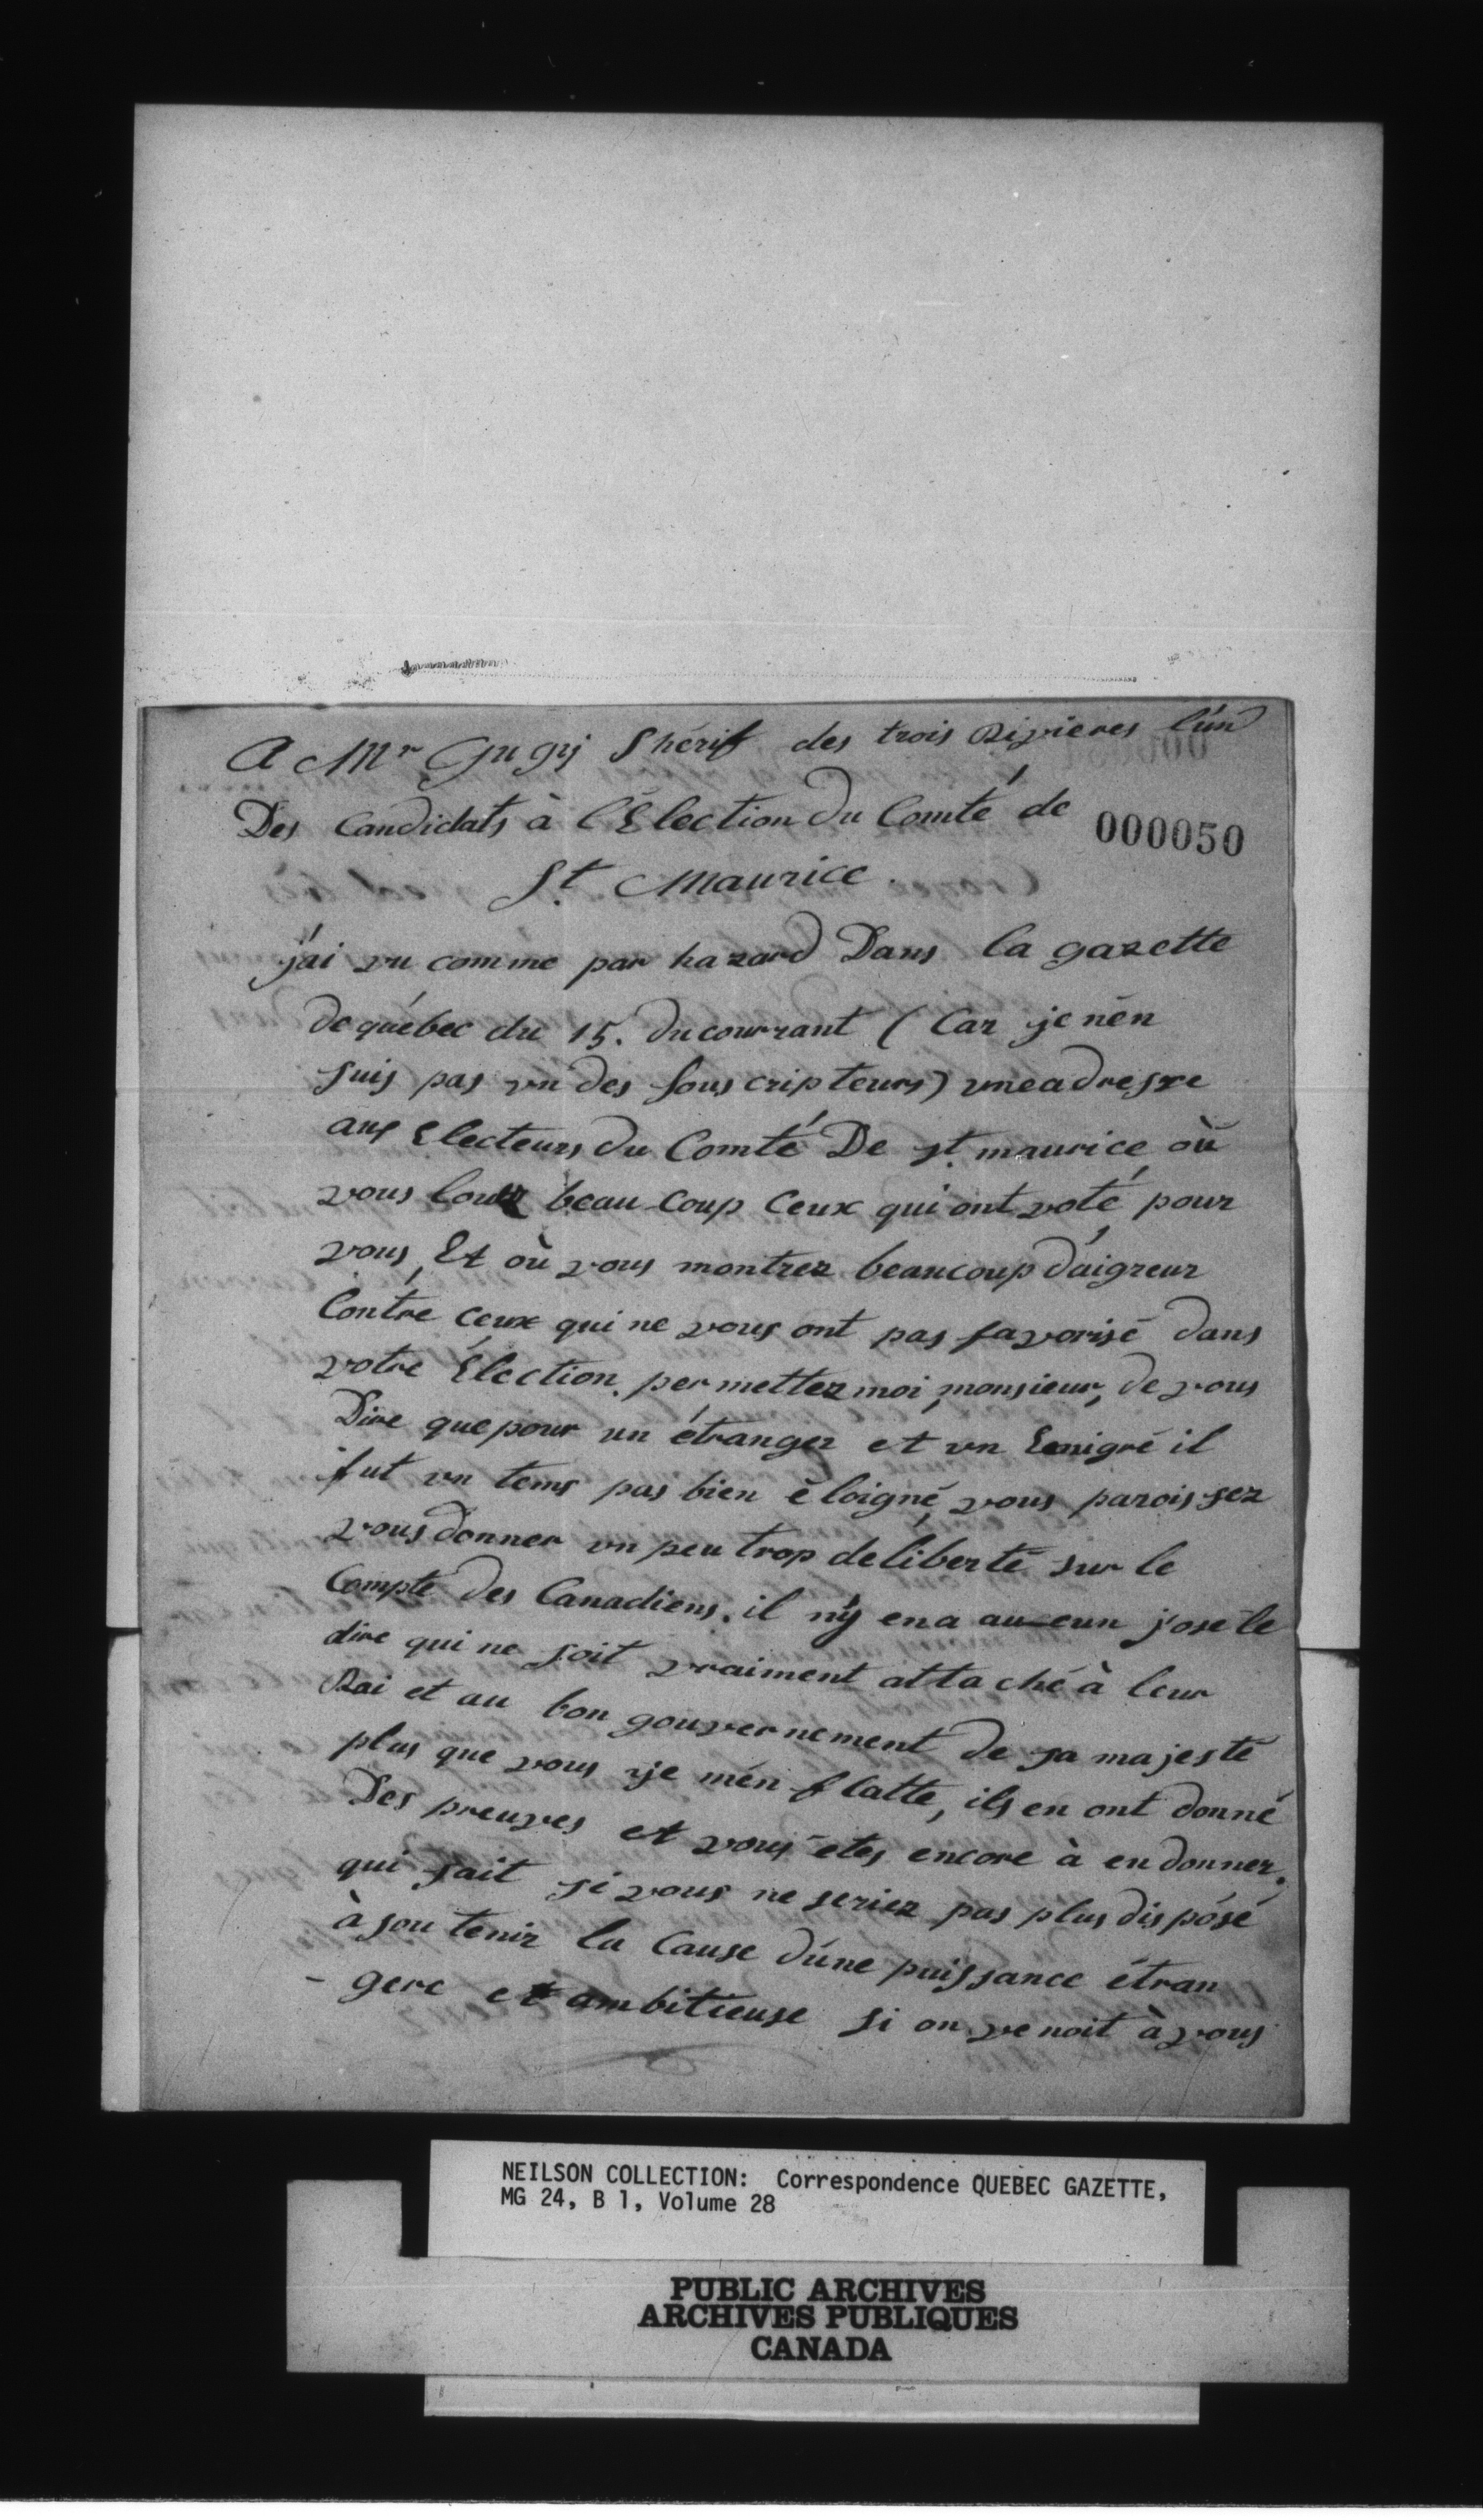 A Mr Gugy Shérif des trois Rivieres l'un
Des Candidats à l'Election Du Comté de
000050
St. Maurice.
j'ai vu comme par hazard Dans la gazette
de québec du 15. du courrant (Car je nén
suis pas un des souscripteurs) une adresse
aux Electeurs du Comté De st. maurice où
vous louez beaucoup Ceux qui ont voté pour
vous, Et où vous montrez beaucoup d'aigreur
Contre ceux qui ne vous ont pas favorisé dans
votre Election. permettez moi, monsieur, de vous
Dire que pour un étranger et un Emigré il
fut un tems pas bien éloigné, vous paroissez
vous donner un peu trop de liberté sur le
Compte des Canadiens. il n'y en a aucun j'ose le
dire qui ne soit vraiment attaché à leur
Roi et au bon gouvernement de sa majesté
plus que vous, je m'en flatte, ils en ont donné
Des preuves et vous etes encore à en donner.
qui sait si vous ne seriez pas plus disposé
à soutenir la Cause d'une puissance étran
- gere et ambitieuse si on venoit à vous
NEILSON COLLECTION: Correspondence QUEBEC GAZETTE,
MG 24, B 1, Volume 28
PUBLIC ARCHIVES
ARCHIVES PUBLIQUES
CANADA